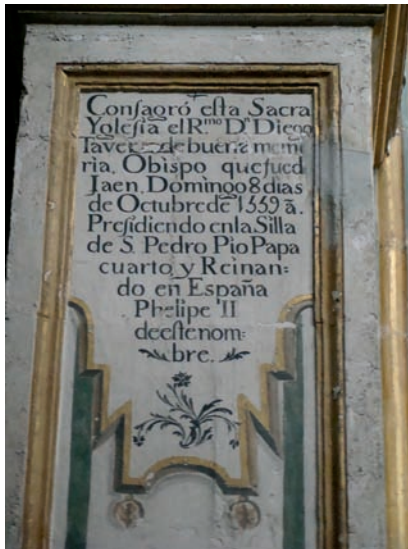 Consagró esta Sacra
Yglesia el R.mo Dn Diego
Tavera de buena memo
ria, Obispo que fue d
Jaen, Domingo 8 dias
de Octubre de 1559 ã.
Presidiendo en la Silla
de S. Pedro Pio Papa
cuarto, y Reinan=
do en España
Phelipe II
de este nom=
bre.